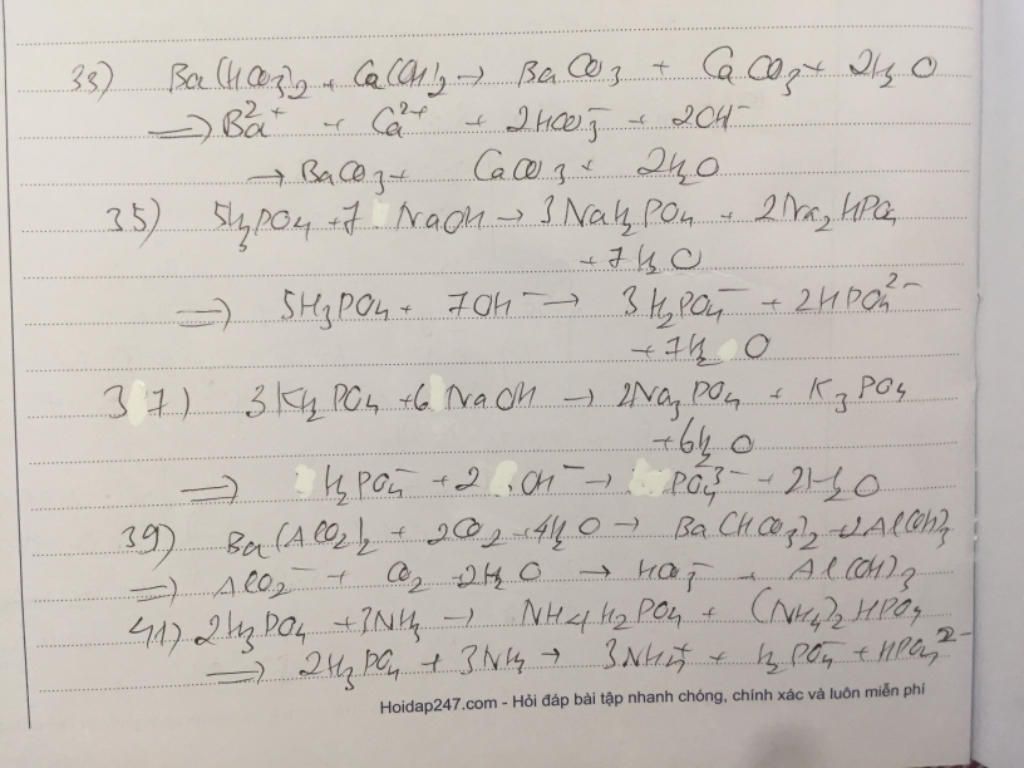 33) Ba(HCO3)2 + Ca(OH)2 → BaCO3 + CaCO3 + 2H2O
⇒ Ba2+ + Ca2+ + 2HCO3- + 2OH-
→ BaCO3 + CaCO3 + 2H2O
35) 5H3PO4 + 7 NaOH → 3NaH2PO4 + 2Na2HPO4
+ 7H2O
⇒ 5H3PO4 + 7OH- → 3H2PO4- + 2HPO42-
+ 7H2O
37) 3KH2PO4 + 6NaOH → 2Na3PO4 + K3PO4
+ 6H2O
⇒ H2PO4- + 2OH- → PO43- + 2H2O
39) Ba(AlO2)2 + 2CO2 + 4H2O → Ba(HCO3)2 + 2Al(OH)3
⇒ AlO2- + CO2 + 2H2O → HCO3- + Al(OH)3
41) 2H3PO4 + 3NH3 → NH4H2PO4 + (NH4)2HPO4
⇒ 2H3PO4 + 3NH3 → 3NH4+ + H2PO4- + HPO42-
Hoidap247.com - Hỏi đáp bài tập nhanh chóng, chính xác và luôn miễn phí